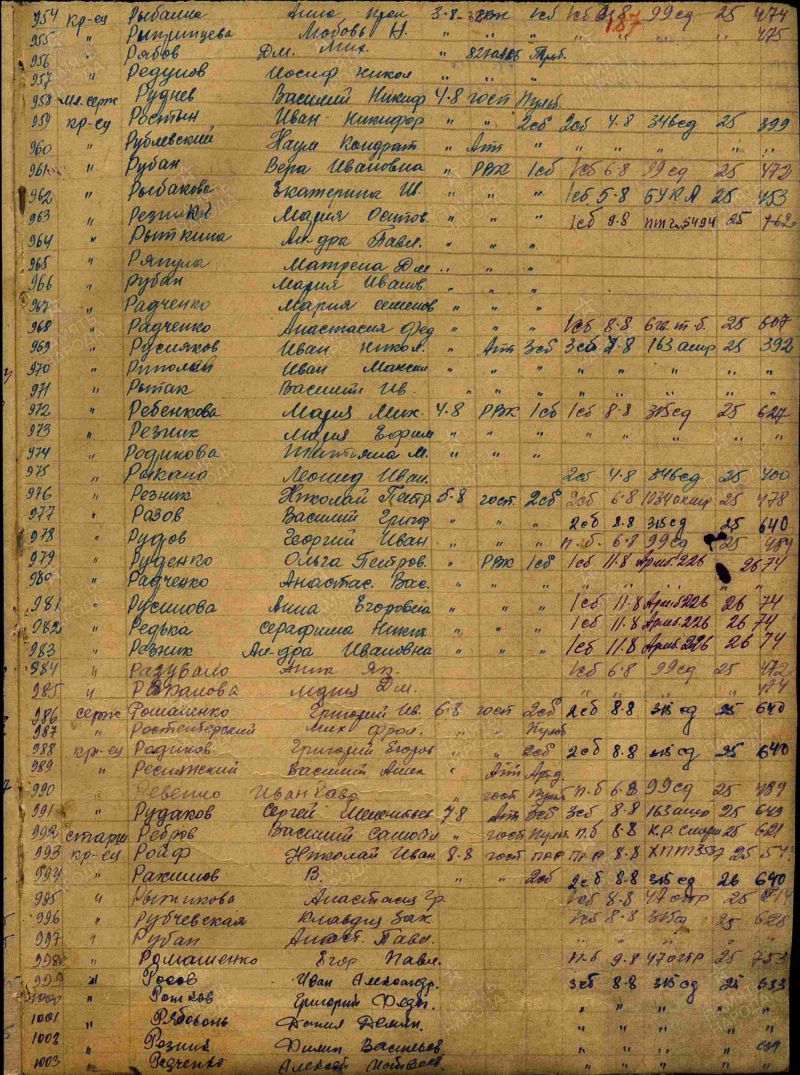 954 кр-ец Рыбалка Анна 3.8 РВК 1сб 1сб 8 99 сд 25 474
955 " Рыпринцева Любовь Н. " " " " " " " 475
187
956 " Рябов Дм. Мих. " "
957 " Редунов Иосиф Никол " "
958 мл. серж Руднев Василий Никиф 4.8 гост Пульб.
959 кр-ец Ростын Иван Никифор " " 2сб 2сб 4.8 346 сд 25 399
960 " Рублевский Наум Кондрат " Атт " " " " " "
961 " Рубан Вера Ивановна " РВК 1сб 1сб 6.8 99 сд 25 472
962 " Рыбакова Екатерина Ив. " " " 1сб 5.8 БУКА 25 453
963 " Мария Осипов. " " " 1сб 9.8 25 762
964 " Рыткина Ал-дра Павл. " " "
965 " Ряпула Матрена Дм. " " "
966 " Рубан Мария Иванв. " " "
967 " Радченко Мария Семенов " " "
968 " Радченко Анастасия Фед " " " 1сб 8.8 25 607
969 " Русляков Иван Никол. " Атт 3сб 3сб 8 163 25 392
970 " Иван Максим " " " " " " " "
971 " Рытак Василий Ив. " " " " " " " "
972 " Ребенкова Мария Мих. 4.8 РВК 1сб 1сб 8.8 315 сд 25 627
973 " Резник Мария Ефим " " " " " " " "
974 " Родикова Татьяна М. " " "
975 " Ракало Леонид Иван. 2сб 4.8 346 сд 25 400
976 " Резник Николай Петр 5.8 гост. 2сб 2сб 6.8 25 478
977 " Разов Василий Григ " " " 2сб 8.8 315 сд 25 640
978 " Рудов Георгий Иван " " " п.б. 6.8 99 сд 25 489
979 " Руденко Ольга Петров. " РВК 1сб 1сб 11.8 Армб 226 26 74
980 " Радченко Анастас. Вас. " " " " " " " "
981 " Русинова Анна Егоровна " " " 1сб 11.8 Армб 226 26 74
982 " Редька Серафима Никит. " " " 1сб 11.8 Армб 226 26 74
983 " Резник Ал-дра Ивановна " " " 1сб 11.8 Армб 226 26 74
984 " Разувало Анна Як. 1сб 6.8 99 сд 25 472
985 " Мария Дм. " " " " 474
986 серж Романенко Григорий Ив. 6.8 гост 2сб 2сб 8.8 315 сд 25 640
987 " Мих Фрол. " " Пульб
988 кр-ец Родиков Григорий Егоров " " 2сб 2сб 8.8 315 сд 25 640
989 " Василий " Атт Арт.д.
990 Ревенко Иван Сав " гост Пульб п.б 6.8 99 сд 25 489
991 " Рудаков Сергей 7.8 Атт 3сб 3сб 8.8 163 25 649
992 старш Ребров Василий " гост Пульб п.б 8.8 25 621
993 кр-ец Ройф Николай Иван 8.8 гост 8.8 ХППГ 25
994 " Рахимов В. " " 2сб 2сб 8.8 315 сд 26 640
995 " Рыжикова Анастасия Гр. 1сб 8.8 47 25
996 " Рубчевская Клавдия Зах 1сб 8.8 315 сд 25 628
997 " Рубан Анаст. Павл. " " " " "
998 " Ромашенко Егор Павл. п.б 9.8 47 25 753
999 " Росов Иван Александр. 3сб 8.8 315 сд 25 633
1000 " Рожков Григорий Федо. " " " " "
1001 " Рябоконь Демян. " " " " "
1002 " Резник Филип Васильев " " " " "
1003 " Радченко Алексей " " " " "